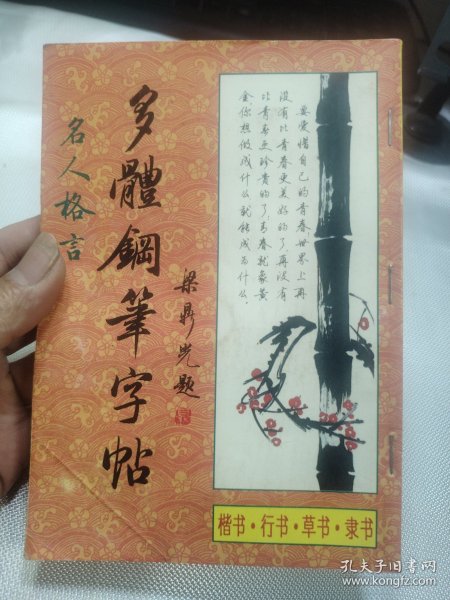 名人格言
多體鋼筆字帖
梁鼎光题
要爱惜自己的青春,世界上再
没有比青春更美好的了,再没有
比青春更珍贵的了,青春就象黄
金你想做成什么就能成为什么.
楷书·行书·草书·隶书
孔夫子旧书网
www.kongfz.com